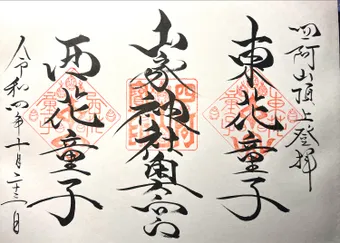 四阿山頂上登拝
東花童子
山家神社奥宮
西花童子
令和四年十月二十三日